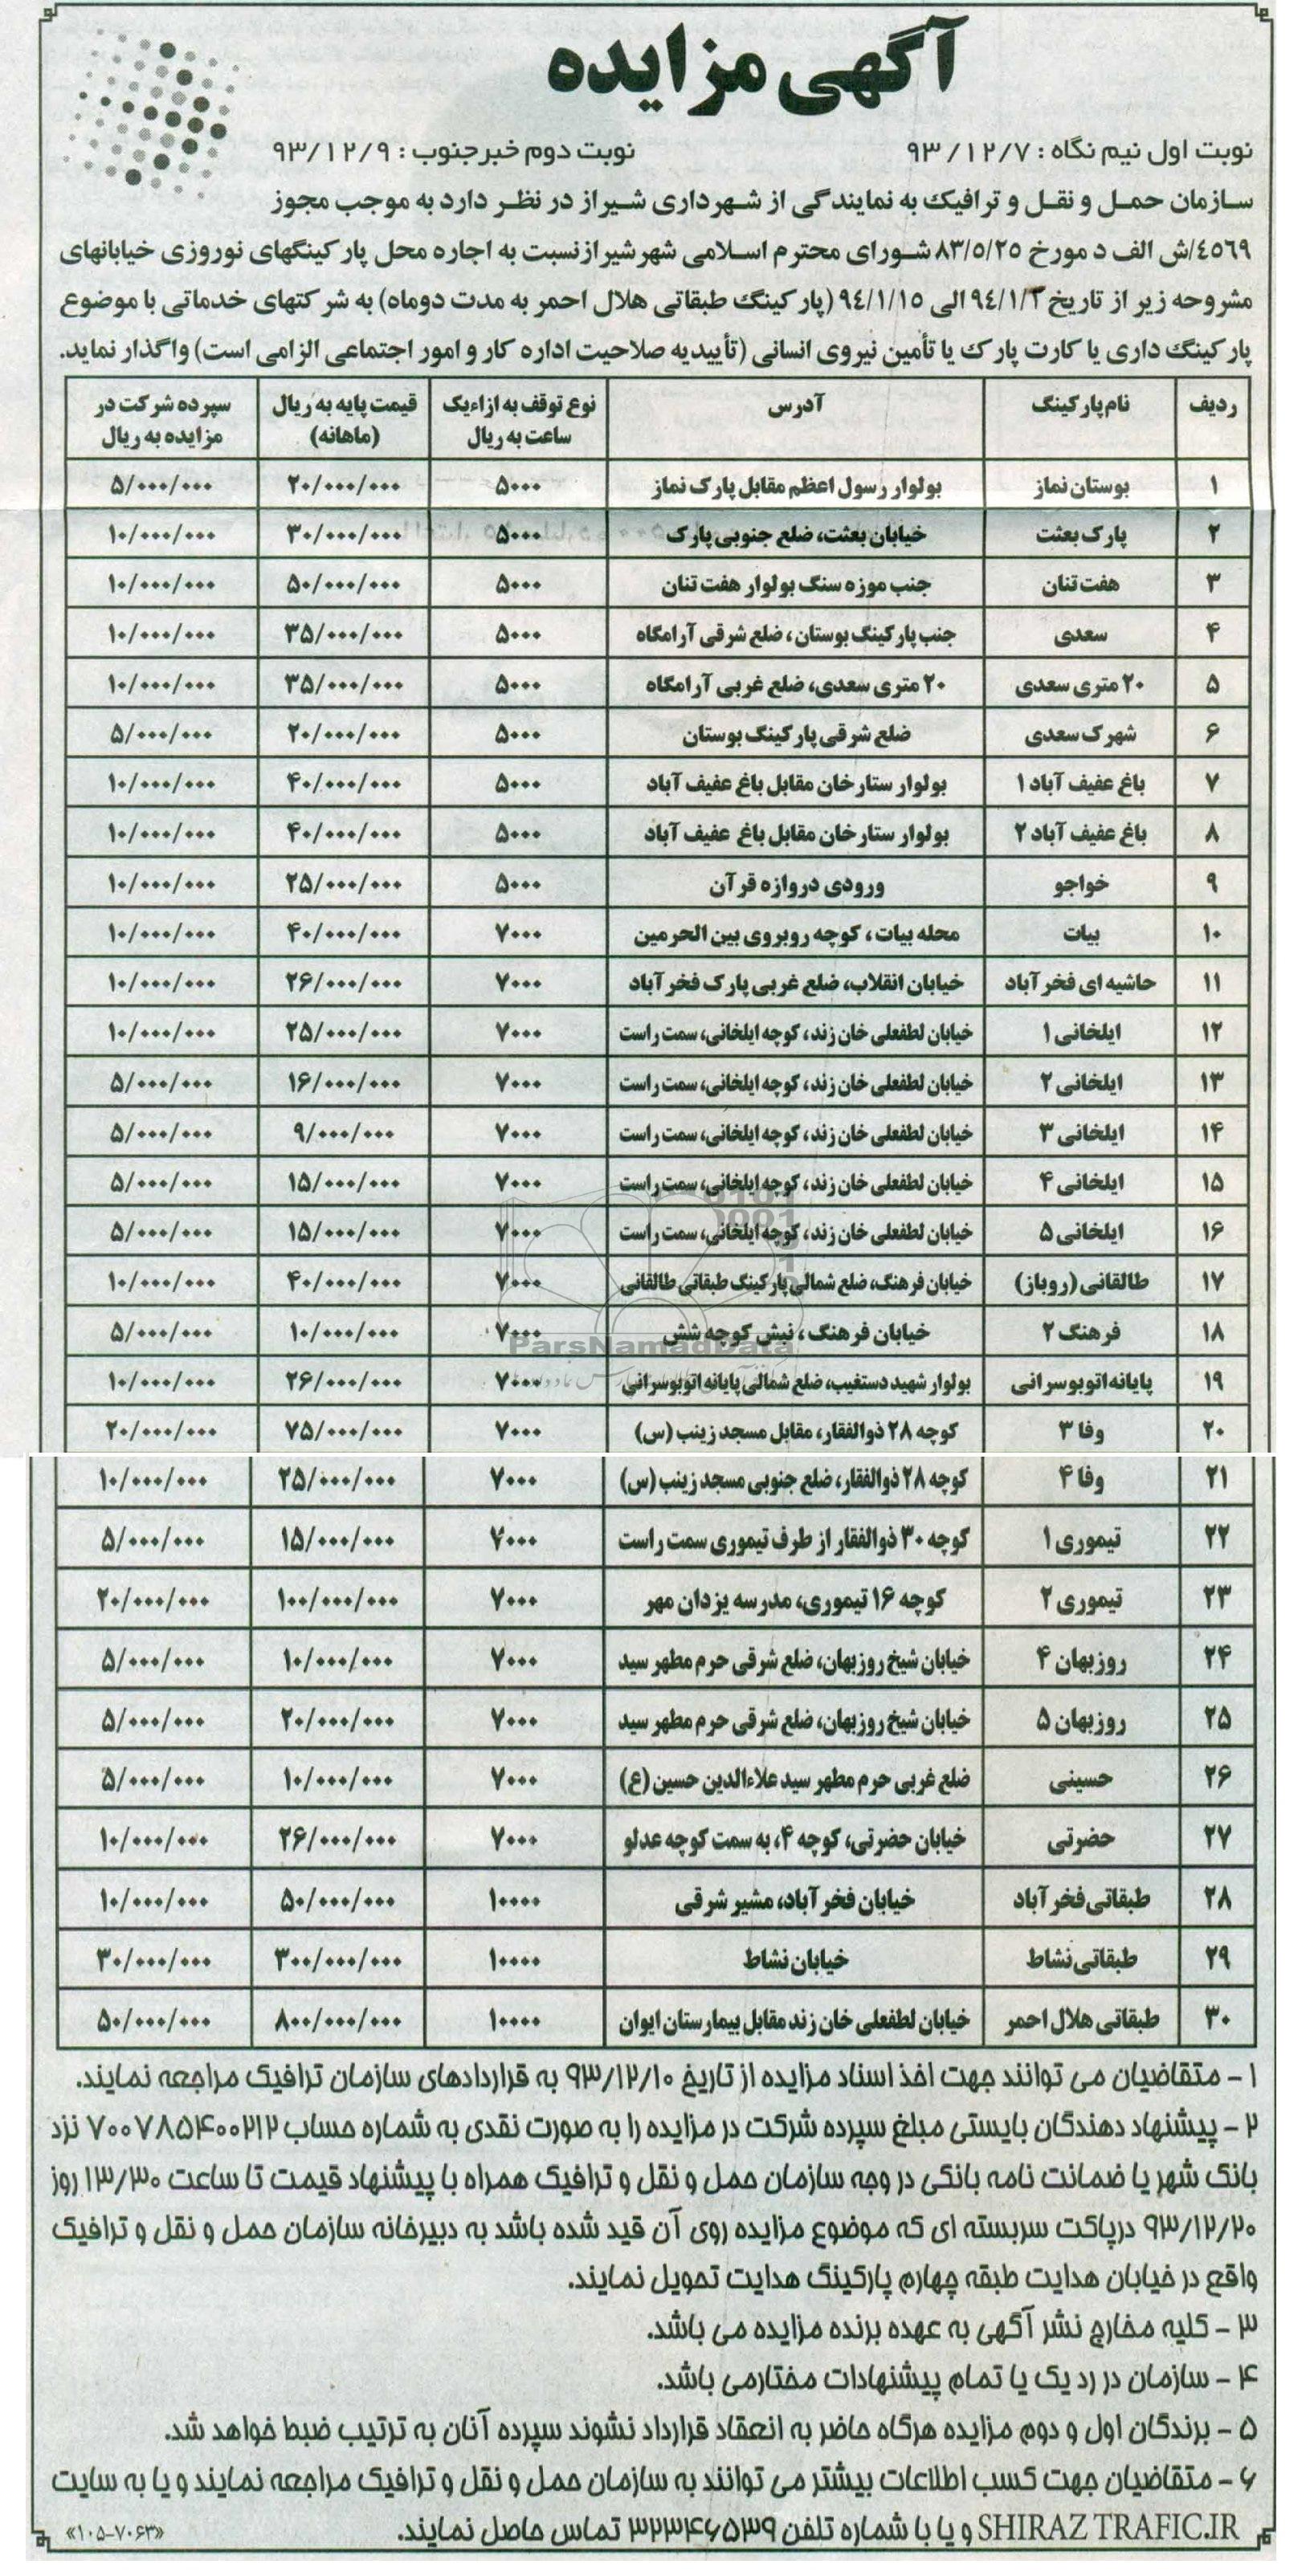 آگهی مزایده
نوبت اول نیم نگاه : ۹۳/۱۲/۷ نوبت دوم خبرجنوب : ۹۳/۱۲/۹
سازمان حمل و نقل و ترافیک به نمایندگی از شهرداری شیراز در نظر دارد به موجب مجوز
٤٥٦٩/ش الف د مورخ ٨٣/٥/٢٥ شورای محترم اسلامی شهر شیراز نسبت به اجاره محل پارکینگهای نوروزی خیابانهای
مشروحه زیر از تاریخ ٩٤/١/٢ الی ٩٤/١/١٥ (پارکینگ طبقاتی هلال احمر به مدت دوماه) به شرکتهای خدماتی با موضوع
پارکینگ داری یا کارت پارک یا تأمین نیروی انسانی (تأییدیه صلاحیت اداره کار و امور اجتماعی الزامی است) واگذار نماید.
ردیف نام پارکینگ آدرس نوع توقف به ازاء یک ساعت به ریال قیمت پایه به ریال (ماهانه) سپرده شرکت در مزایده به ریال
۱ بوستان نماز بولوار رسول اعظم مقابل پارک نماز ۵۰۰۰ ۲۰/۰۰۰/۰۰۰ ۵/۰۰۰/۰۰۰
۲ پارک بعثت خیابان بعثت، ضلع جنوبی پارک ۵۰۰۰ ۳۰/۰۰۰/۰۰۰ ۱۰/۰۰۰/۰۰۰
۳ هفت تنان جنب موزه سنگ بولوار هفت تنان ۵۰۰۰ ۵۰/۰۰۰/۰۰۰ ۱۰/۰۰۰/۰۰۰
۴ سعدی جنب پارکینگ بوستان، ضلع شرقی آرامگاه ۵۰۰۰ ۳۵/۰۰۰/۰۰۰ ۱۰/۰۰۰/۰۰۰
۵ ۲۰ متری سعدی ۲۰ متری سعدی، ضلع غربی آرامگاه ۵۰۰۰ ۳۵/۰۰۰/۰۰۰ ۱۰/۰۰۰/۰۰۰
۶ شهرک سعدی ضلع شرقی پارکینگ بوستان ۵۰۰۰ ۲۰/۰۰۰/۰۰۰ ۵/۰۰۰/۰۰۰
۷ باغ عفیف آباد ۱ بولوار ستارخان مقابل باغ عفیف آباد ۵۰۰۰ ۴۰/۰۰۰/۰۰۰ ۱۰/۰۰۰/۰۰۰
۸ باغ عفیف آباد ۲ بولوار ستارخان مقابل باغ عفیف آباد ۵۰۰۰ ۴۰/۰۰۰/۰۰۰ ۱۰/۰۰۰/۰۰۰
۹ خواجو ورودی دروازه قرآن ۵۰۰۰ ۲۵/۰۰۰/۰۰۰ ۱۰/۰۰۰/۰۰۰
۱۰ بیات محله بیات، کوچه روبروی بین الحرمین ۷۰۰۰ ۴۰/۰۰۰/۰۰۰ ۱۰/۰۰۰/۰۰۰
۱۱ حاشیه ای فخرآباد خیابان انقلاب، ضلع غربی پارک فخرآباد ۷۰۰۰ ۲۶/۰۰۰/۰۰۰ ۱۰/۰۰۰/۰۰۰
۱۲ ایلخانی ۱ خیابان لطفعلی خان زند، کوچه ایلخانی، سمت راست ۷۰۰۰ ۲۵/۰۰۰/۰۰۰ ۱۰/۰۰۰/۰۰۰
۱۳ ایلخانی ۲ خیابان لطفعلی خان زند، کوچه ایلخانی، سمت راست ۷۰۰۰ ۱۶/۰۰۰/۰۰۰ ۵/۰۰۰/۰۰۰
۱۴ ایلخانی ۳ خیابان لطفعلی خان زند، کوچه ایلخانی، سمت راست ۷۰۰۰ ۹/۰۰۰/۰۰۰ ۵/۰۰۰/۰۰۰
۱۵ ایلخانی ۴ خیابان لطفعلی خان زند، کوچه ایلخانی، سمت راست ۷۰۰۰ ۱۵/۰۰۰/۰۰۰ ۵/۰۰۰/۰۰۰
۱۶ ایلخانی ۵ خیابان لطفعلی خان زند، کوچه ایلخانی، سمت راست ۷۰۰۰ ۱۵/۰۰۰/۰۰۰ ۵/۰۰۰/۰۰۰
۱۷ طالقانی (روباز) خیابان فرهنگ، ضلع شمالی پارکینگ طبقاتی طالقانی ۷۰۰۰ ۴۰/۰۰۰/۰۰۰ ۱۰/۰۰۰/۰۰۰
۱۸ فرهنگ ۲ خیابان فرهنگ، نبش کوچه شش ۷۰۰۰ ۱۰/۰۰۰/۰۰۰ ۵/۰۰۰/۰۰۰
ParsNamadData
۱۹ پایانه اتوبوسرانی بولوار شهید دستغیب، ضلع شمالی پایانه اتوبوسرانی ۷۰۰۰ ۲۶/۰۰۰/۰۰۰ ۱۰/۰۰۰/۰۰۰
۲۰ وفا ۳ کوچه ۲۸ ذوالفقار، مقابل مسجد زینب (س) ۷۰۰۰ ۷۵/۰۰۰/۰۰۰ ۲۰/۰۰۰/۰۰۰
۲۱ وفا ۴ کوچه ۲۸ ذوالفقار، ضلع جنوبی مسجد زینب (س) ۷۰۰۰ ۲۵/۰۰۰/۰۰۰ ۱۰/۰۰۰/۰۰۰
۲۲ تیموری ۱ کوچه ۳۰ ذوالفقار از طرف تیموری سمت راست ۷۰۰۰ ۱۵/۰۰۰/۰۰۰ ۵/۰۰۰/۰۰۰
۲۳ تیموری ۲ کوچه ۱۶ تیموری، مدرسه یزدان مهر ۷۰۰۰ ۱۰۰/۰۰۰/۰۰۰ ۲۰/۰۰۰/۰۰۰
۲۴ روزبهان ۴ خیابان شیخ روزبهان، ضلع شرقی حرم مطهر سید ۷۰۰۰ ۱۰/۰۰۰/۰۰۰ ۵/۰۰۰/۰۰۰
۲۵ روزبهان ۵ خیابان شیخ روزبهان، ضلع شرقی حرم مطهر سید ۷۰۰۰ ۲۰/۰۰۰/۰۰۰ ۵/۰۰۰/۰۰۰
۲۶ حسینی ضلع غربی حرم مطهر سید علاءالدین حسین (ع) ۷۰۰۰ ۱۰/۰۰۰/۰۰۰ ۵/۰۰۰/۰۰۰
۲۷ حضرتی خیابان حضرتی، کوچه ۴، به سمت کوچه عدلو ۷۰۰۰ ۲۶/۰۰۰/۰۰۰ ۱۰/۰۰۰/۰۰۰
۲۸ طبقاتی فخرآباد خیابان فخرآباد، مشیر شرقی ۱۰۰۰۰ ۵۰/۰۰۰/۰۰۰ ۱۰/۰۰۰/۰۰۰
۲۹ طبقاتی نشاط خیابان نشاط ۱۰۰۰۰ ۳۰۰/۰۰۰/۰۰۰ ۳۰/۰۰۰/۰۰۰
۳۰ طبقاتی هلال احمر خیابان لطفعلی خان زند مقابل بیمارستان ایوان ۱۰۰۰۰ ۸۰۰/۰۰۰/۰۰۰ ۵۰/۰۰۰/۰۰۰
۱ - متقاضیان می توانند جهت اخذ اسناد مزایده از تاریخ ۹۳/۱۲/۱۰ به قراردادهای سازمان ترافیک مراجعه نمایند.
۲ - پیشنهاد دهندگان بایستی مبلغ سپرده شرکت در مزایده را به صورت نقدی به شماره حساب ۷۰۰۷۸۵۴۰۰۲۱۲ نزد
بانک شهر یا ضمانت نامه بانکی در وجه سازمان حمل و نقل و ترافیک همراه با پیشنهاد قیمت تا ساعت ۱۳/۳۰ روز
۹۳/۱۲/۲۰ در پاکت سربسته ای که موضوع مزایده روی آن قید شده باشد به دبیرخانه سازمان حمل و نقل و ترافیک
واقع در خیابان هدایت طبقه چهارم پارکینگ هدایت تحویل نمایند.
۳ - کلیه مخارج نشر آگهی به عهده برنده مزایده می باشد.
۴ - سازمان در رد یک یا تمام پیشنهادات مختارمی باشد.
۵ - برندگان اول و دوم مزایده هرگاه حاضر به انعقاد قرارداد نشوند سپرده آنان به ترتیب ضبط خواهد شد.
۶ - متقاضیان جهت کسب اطلاعات بیشتر می توانند به سازمان حمل و نقل و ترافیک مراجعه نمایند و یا به سایت
SHIRAZ TRAFIC.IR و یا با شماره تلفن ۳۲۳۴۶۵۳۹ تماس حاصل نمایند. «۱۰۵-۷۰۶۳»